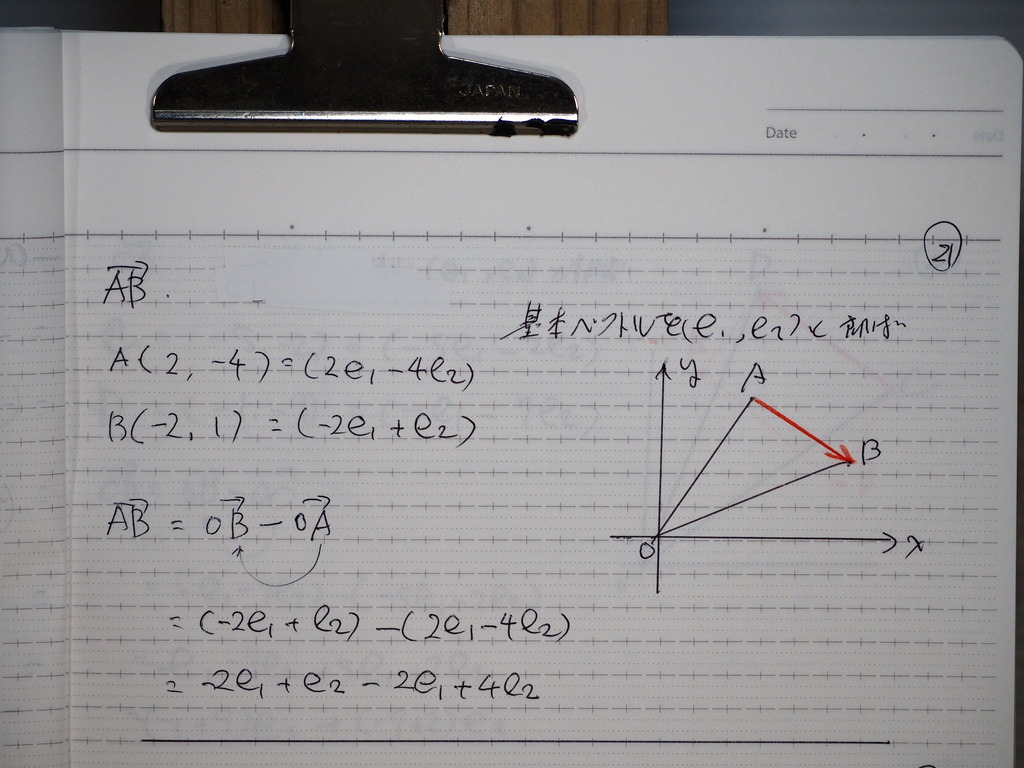 JAPAN
Date
21
AB.
基本ベクトルで(e1, e2)×
A(2, -4) = (2e1 - 4e2)
B(-2, 1) = (-2e1 + e2)
y
A
B
O
x
AB = OB - OA
= (-2e1 + e2) - (2e1 - 4e2)
= -2e1 + e2 - 2e1 + 4e2